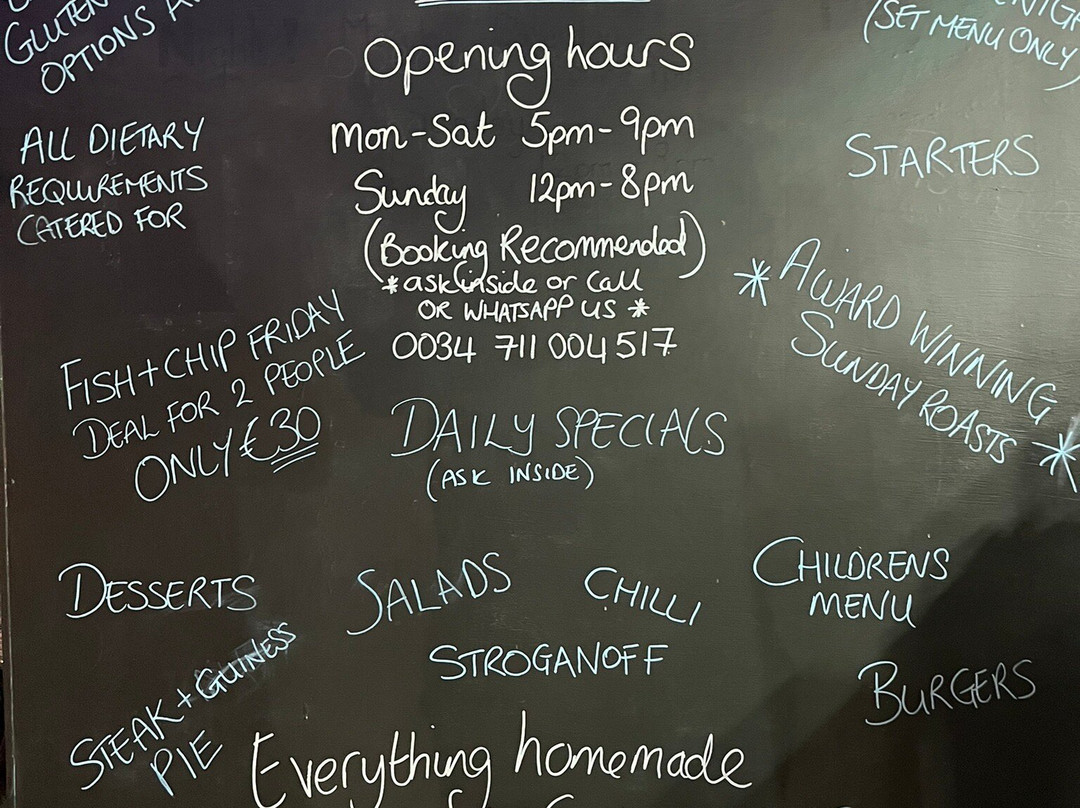 GLUTEN
OPTIONS
(SET MENU ONLY)
Opening hours
Mon-Sat 5pm-9pm
Sunday 12pm-8pm
(Booking Recommended)
*ask inside or Call
OR WHATSAPP US *
0034 711 004 517
ALL DIETARY
REQUIREMENTS
CATERED FOR
STARTERS
* AWARD WINNING
SUNDAY ROASTS *
FISH+CHIP FRIDAY
DEAL FOR 2 PEOPLE
ONLY €30
DAILY SPECIALS
(ASK INSIDE)
DESSERTS
SALADS
CHILLI
CHILDRENS
MENU
STROGANOFF
STEAK + GUINESS
PIE
BURGERS
Everything homemade